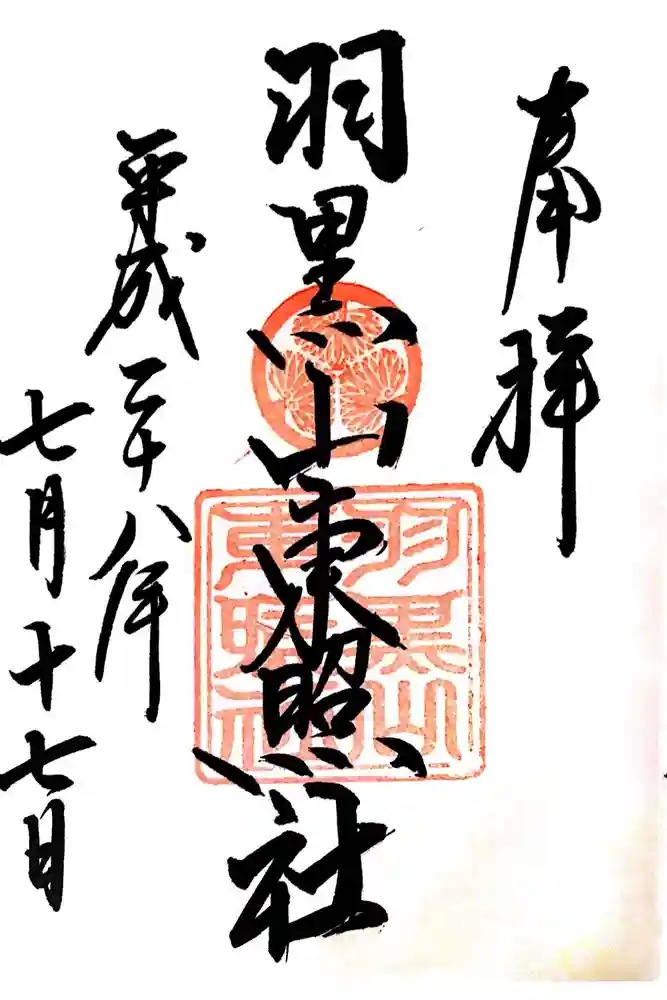 奉拝
羽黒山東照社
羽黒山
東照社
平成二十八年
七月十七日